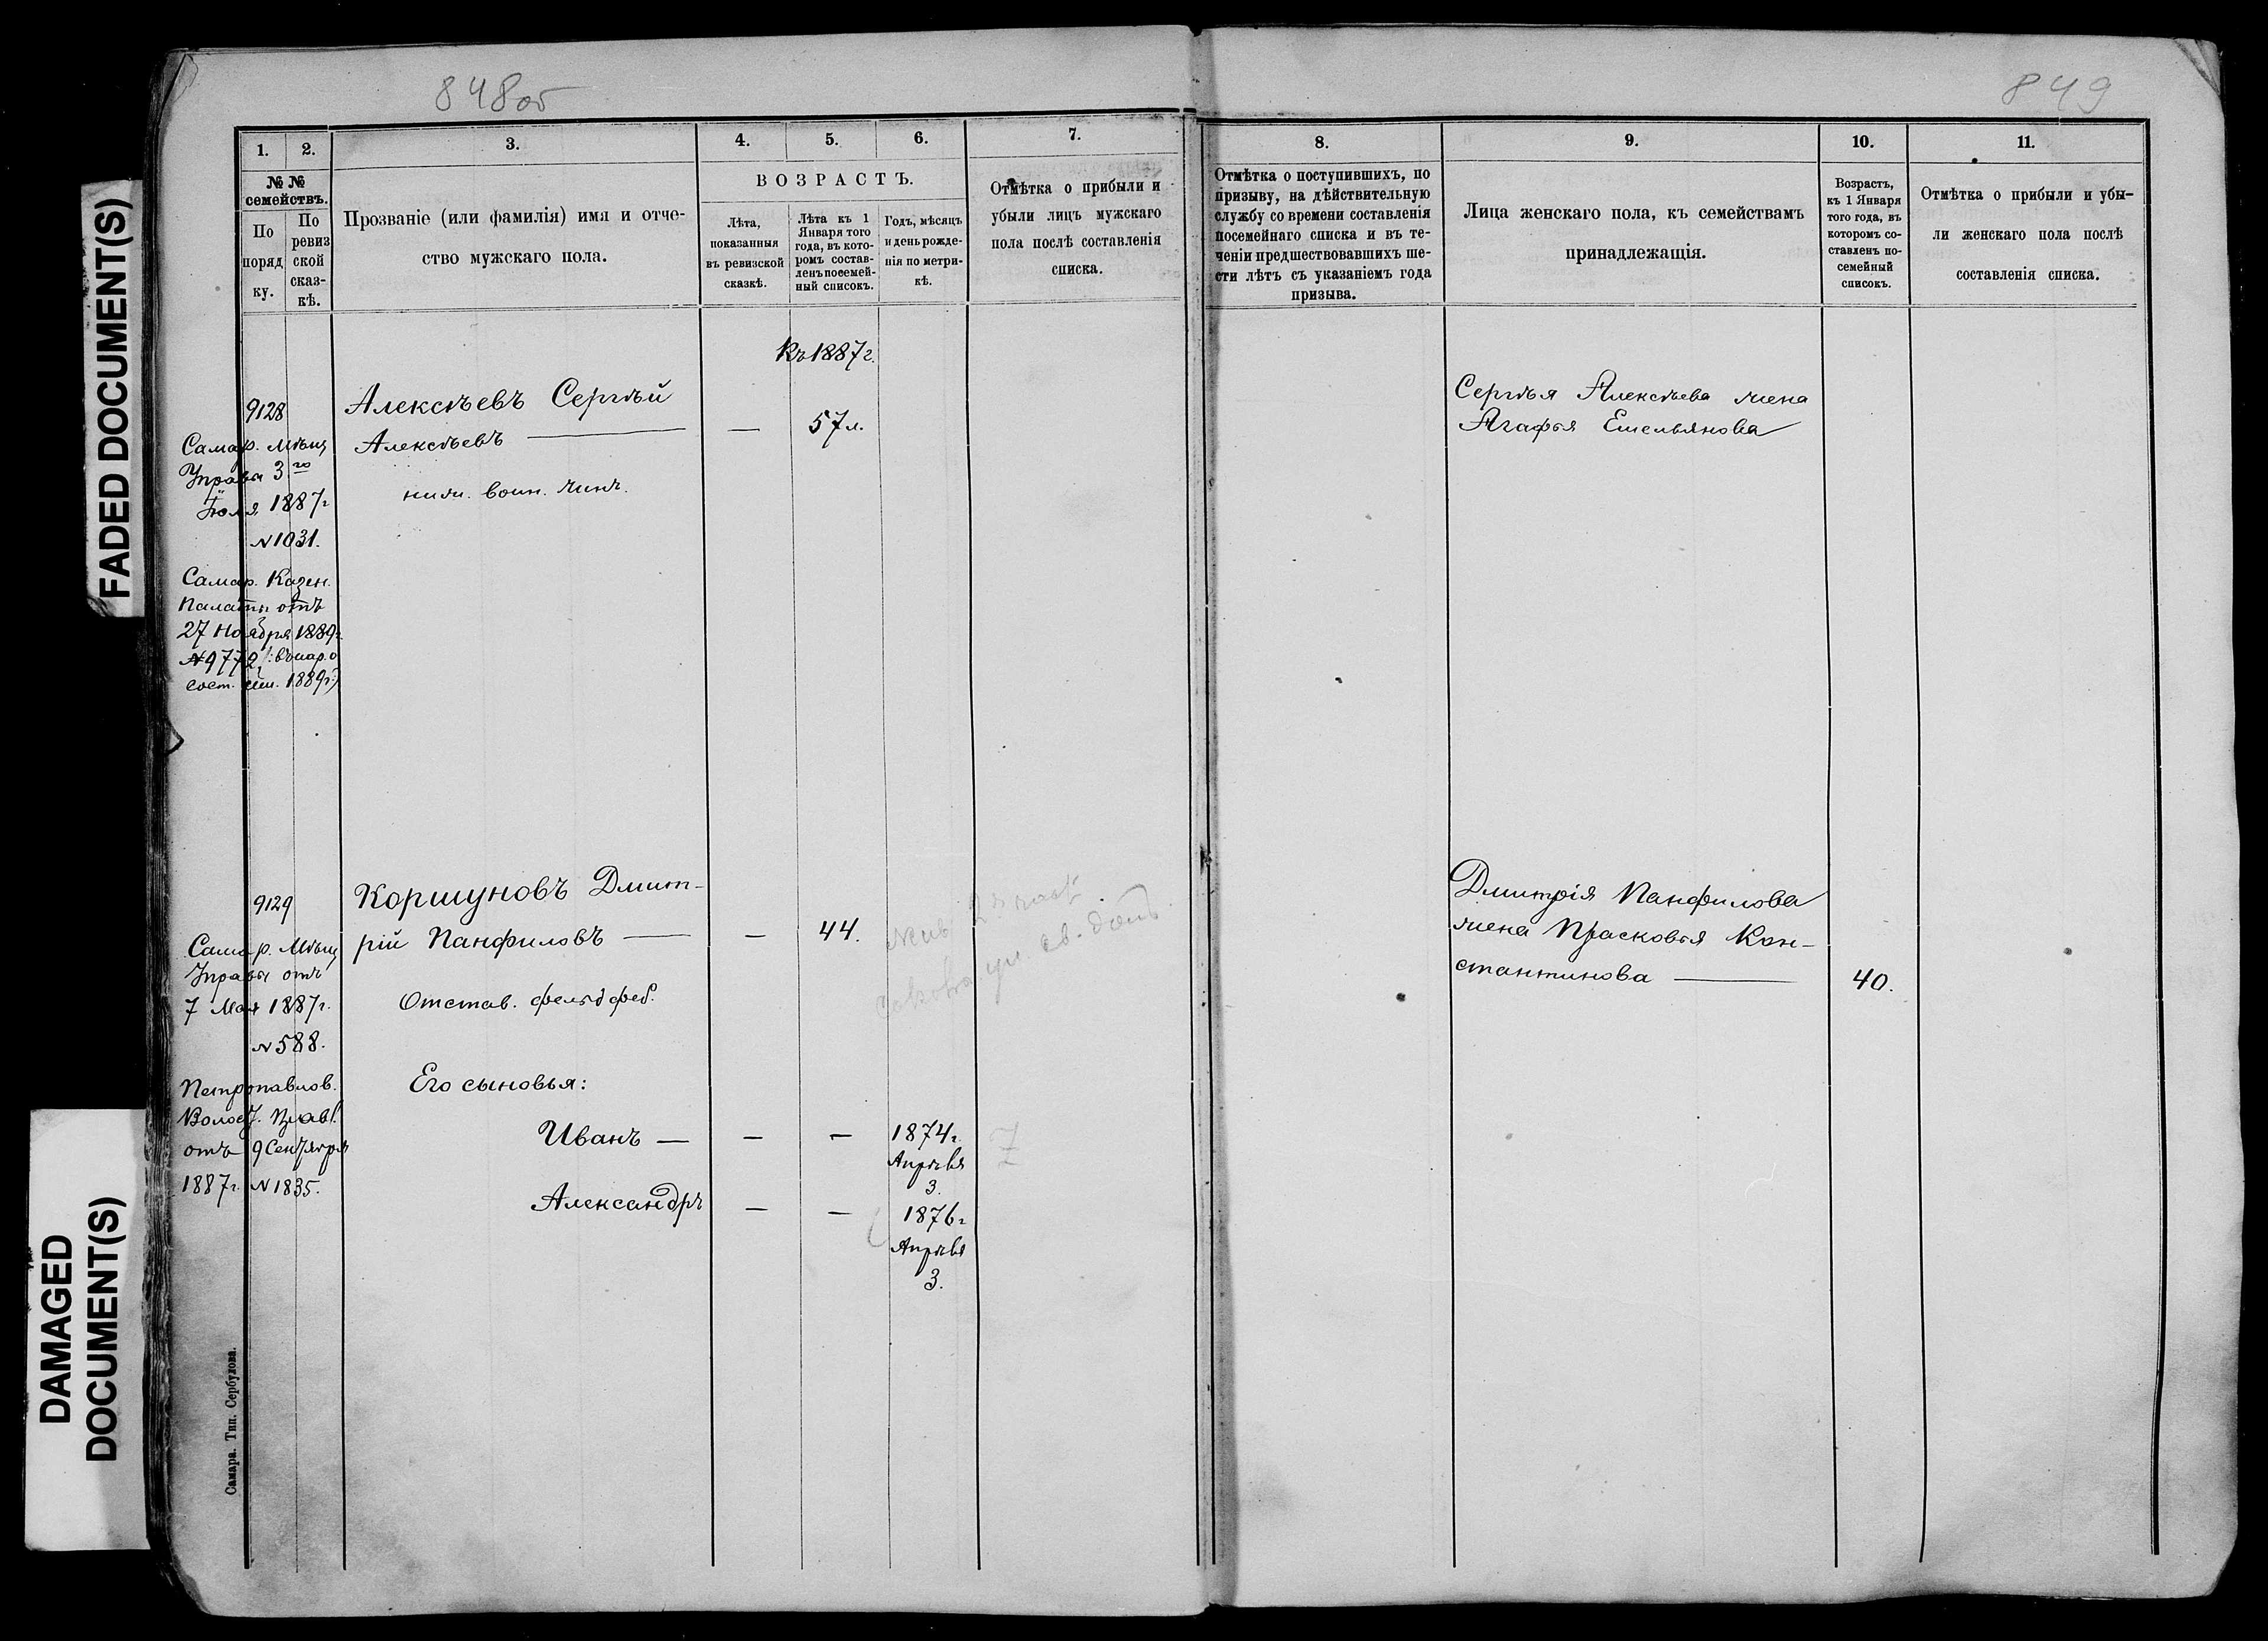 848об
849
FADED DOCUMENT(S)
DAMAGED
DOCUMENT(S)
1.
2.
3.
4.
5.
6.
7.
№ №
семействъ.
По
поряд
ку.
По
ревиз
ской
сказ-
кѣ.
Прозваніе (или фамилія) имя и отче-
ство мужскаго пола.
ВОЗРАСТЪ.
Лѣта,
показанныя
въ ревизской
сказкѣ.
Лѣта къ 1
Января того
года, въ кото-
ромъ состав-
ленъ посемей-
ный списокъ.
Годъ, мѣсяцъ
и день рожде-
нія по метри-
кѣ.
Отмѣтка о прибыли и
убыли лицъ мужскаго
пола послѣ составленія
списка.
8.
9.
10.
11.
Отмѣтка о поступившихъ, по
призыву, на дѣйствительную
службу со времени составленія
посемейнаго списка и въ те-
ченіи предшествовавшихъ ше-
сти лѣтъ съ указаніемъ года
призыва.
Лица женскаго пола, къ семействамъ
принадлежащія.
Возрастъ,
къ 1 Января
того года, въ
которомъ со-
ставленъ по-
семейный
списокъ.
Отмѣтка о прибыли и убы-
ли женскаго пола послѣ
составленія списка.
Къ 1887г.
9128
Самар. Мѣщ
Управы 3го
Іюля 1887г
№1031.
Самар. Казен.
Палаты отъ
27 Ноября 1889г.
№9772
сост. 1889г.)
Алексѣевъ Сергѣй
Алексѣевъ — — 57л.
ниж. воин. чинъ.
Сергѣя Алексѣева жена
Агафья Емельянова
9129
Самар. Мѣщ
Управы отъ
7 Мая 1887г.
№588.
Петропавлов.
Волост. Правл.
отъ 9 Сентября
1887г. №1835.
Коршуновъ Дмит-
рій Панфиловъ — — 44.
Отстав. фельдфеб.
Его сыновья:
Иванъ — — — 1874г.
Апрѣля
3.
Александръ — — 1876г
Апрѣля
3.
Дмитрія Панфилова
жена Прасковья Кон-
стантинова — 40.
Самара. Тип. Сербулова.